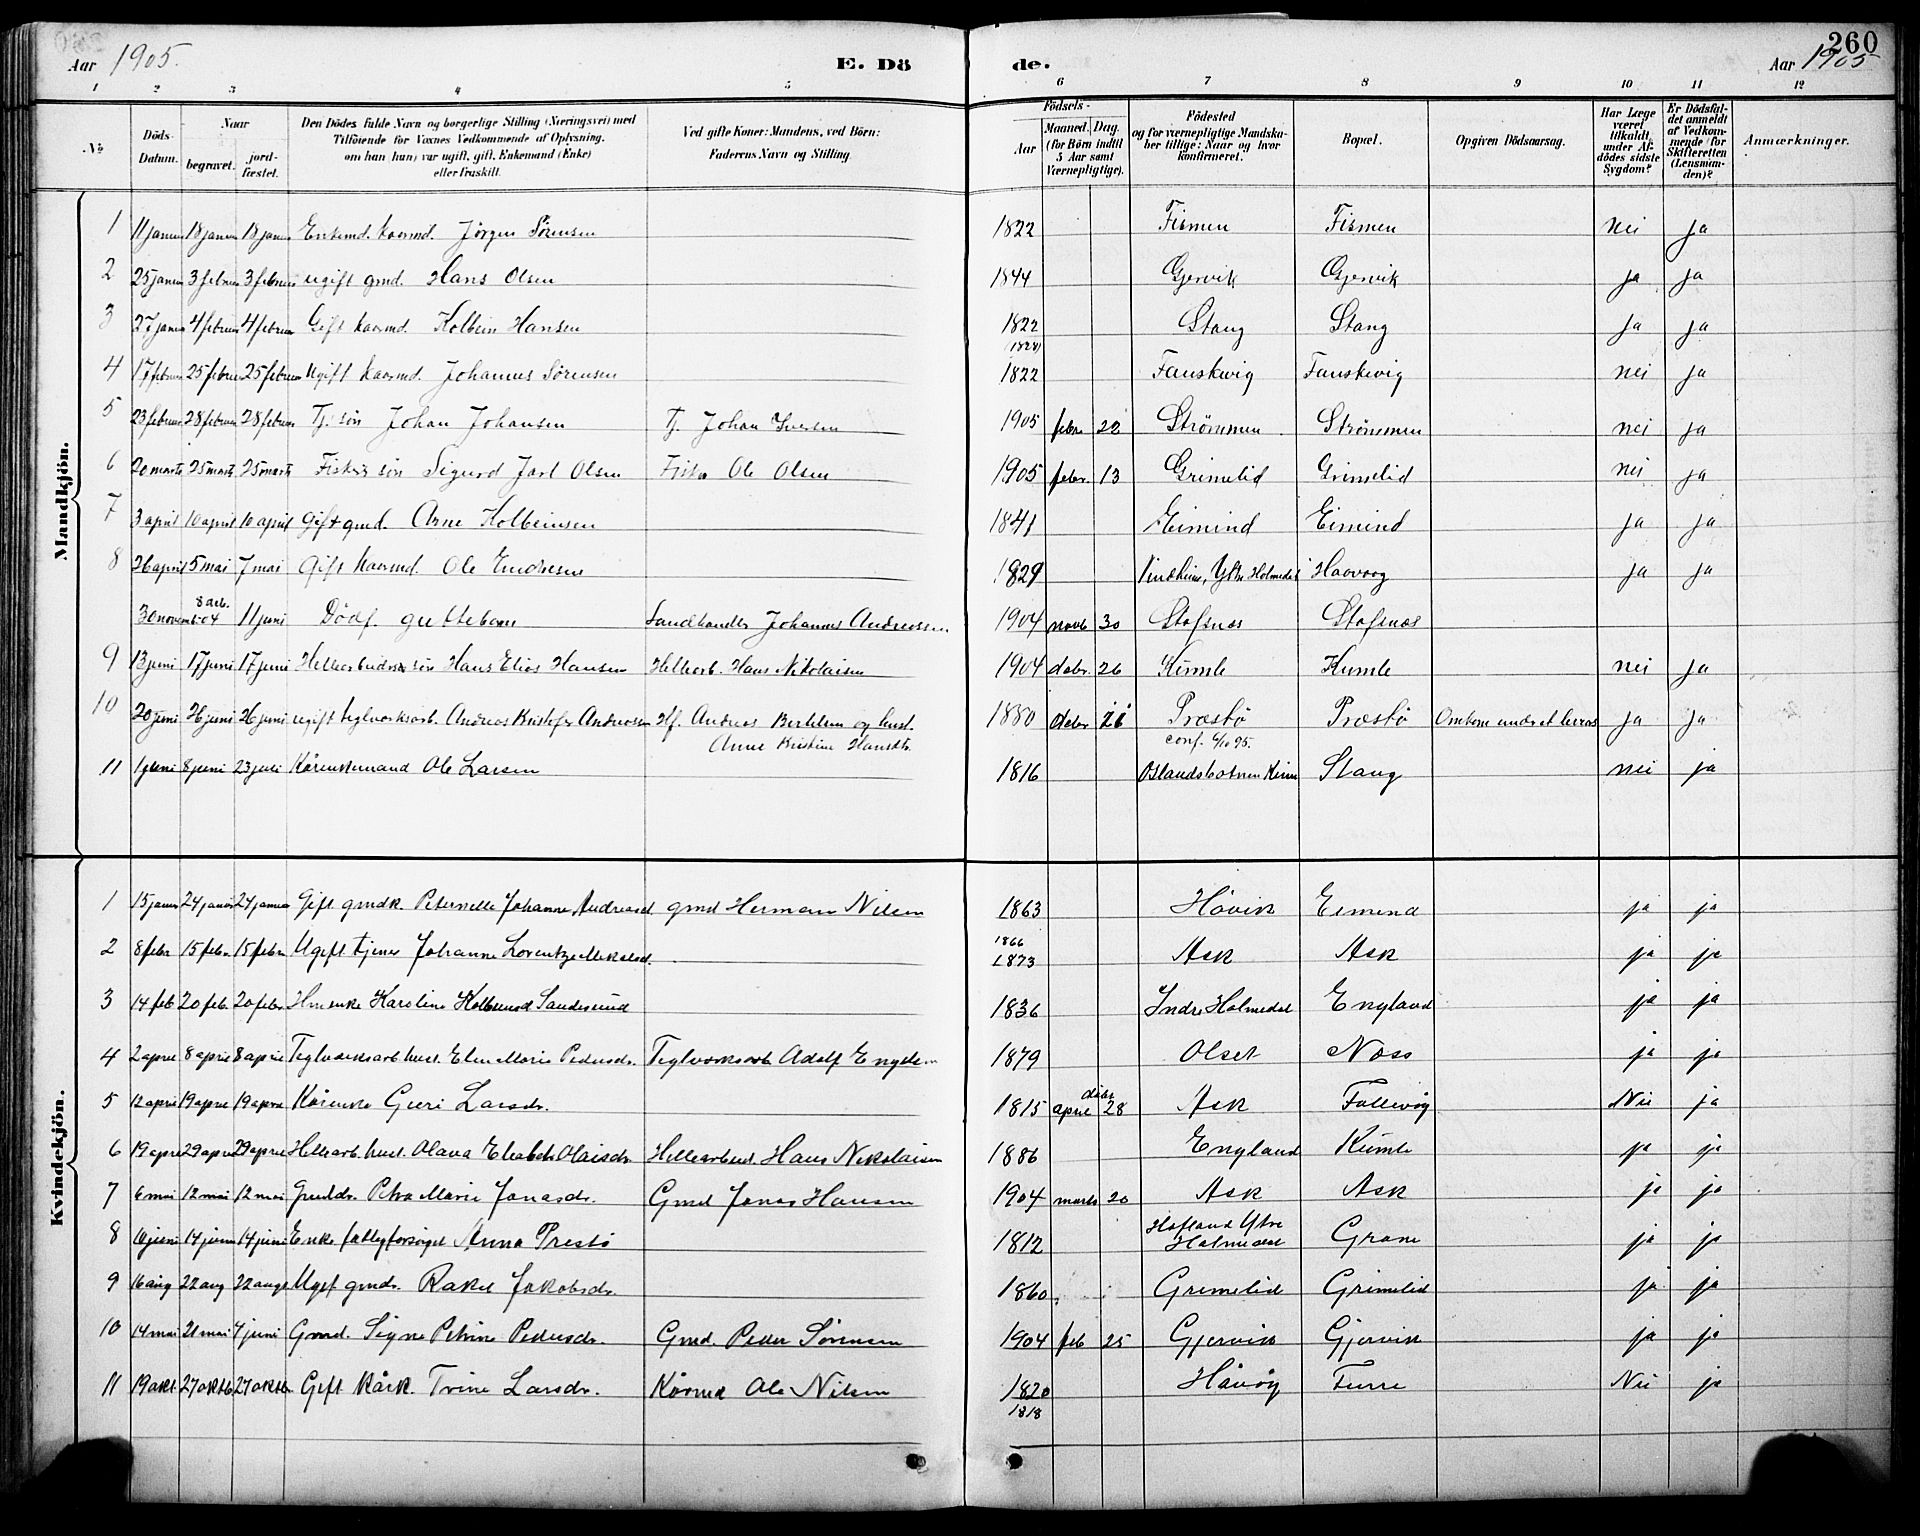 260
Aar 1905.
E. Dö
de.
Aar 1905
1 2 3 4 5 6 7 8 9 10 11 12
No
Döds-Datum.
Naar
begravet. jordfæstet.
Den Dödes fulde Navn og borgerlige Stilling (Næringsvei) med
Tilföiende for Voxnes Vedkommende af Oplysning,
om han (hun) var ugift, gift, Enkemand (Enke)
eller fraskilt.
Ved gifte Koner: Mandens, ved Börn:
Faderens Navn og Stilling.
Födsels-
Aar
Maaned. Dag.
(for Börn indtil
5 Aar samt
Værnepligtige).
Födested
og for værnepligtige Mandska-
ber tillige: Naar og hvor
konfirmeret.
Bopæl.
Opgiven Dödsaarsag.
Har Læge
været
tilkaldt
under Af-
dödes sidste
Sygdom?
Er Dödsfal-
det anmeldt
af Vedkom-
mende for
Skifteretten
(Lensman-
den)?
Anmærkninger.
Mandkjön.
1 11 januar 18 januar 18 januar Enkemd. kaarmd. Jörgen Sörensen 1822 Fismen Fismen nei ja
2 25 januar 3 februar 3 februar ugift gmd. Hans Olsen 1844 Gjervik Gjervik ja ja
3 27 januar 4 februar 4 februar Gift kaarmd. Kolbein Hansen 1822 Stang Stang ja ja
(1828)
4 17 februar 25 februar 25 februar Ugift kaarmd. Johannes Sörensen 1822 Fauskevig Fauskevig nei ja
5 23 februar 28 februar 28 februar Tj. sön Johan Johansen Tj. Johan Iversen 1905 febr. 22 Strömmen Strömmen nei ja
6 20 marts 25 marts 25 marts Fiskers sön Sigurd Jarl Olsen Fisker Ole Olsen 1905 febr. 13 Grimelid Grimelid nei ja
7 3 april 10 april 10 april Gift gmd. Arne Kolbeinsen 1841 Eimind Eimind ja ja
8 26 april 5 mai 7 mai Gift kaarmd. Ole Endresen 1829 Vindheim, Ytre Holmedal Haavaag ja ja
30 november 8 deb. 04 11 juni Dödf. guttebarn Landhandler Johannes Andreassen 1904 novb 30 Stafsnæs Stafsnæs
9 13 juni 17 juni 17 juni Hellearbeiders sön Hans Elias Hansen Hellearb. Hans Nikolaisen 1904 debr. 26 Kumle Kumle nei ja
10 20 juni 26 juni 26 juni ugift teglværksarb. Andreas Kristofer Andreasen Hf. Andreas Bertelsen og hust. 1880 debr 21 Præstö Præstö Omkom under et lerras ja ja
Anne Kristine Hansdtr conf. 6/10 95.
11 1 juni 8 juni 23 juli Kårenkemand Ole Larsen 1816 Oslandsbotnen Kirin Stang nei ja
Kvindekjön.
1 15 januar 24 januar 24 januar Gift gmdk. Peternelle Johanne Andreasd gmd Herman Nilsen 1863 Hövik Eimind ja ja
2 8 febr 15 febr. 15 febr Ugift tjener Johanne Lorentze Mikalsd. 1866 Ask Ask ja ja
1873
3 14 feb 20 feb. 20 febr. Hmenke Karoline Kolbeinsd Sandesund 1836 Indre Holmedal England ja ja
4 2 april 8 april 8 april Teglværksarb. hust. Elen Marie Pedersdr. Teglværksarb Adolf Engels 1879 Olset Næss ja ja
5 12 april 19 april 19 april Kårenke Guri Larsdr. 1815 april debr 28 Ask Follevåg Nei ja
6 19 april 29 april 29 april Hellearb. hust. Olava Elisabeth Olaisdr. Hellearbeid. Hans Nikolaisen 1886 England Kumle ja ja
7 6 mai 12 mai 12 mai Gmddr. Petra Marie Jonasdr. Gmd Jonas Hansen 1904 marts 20 Ask Ask ja ja
8 10 juni 14 juni 14 juni Enke fattigforsörget Anna Prestö 1812 Hofland Ytre Holmedal Grane ja ja
9 16 aug 22 aug 22 aug Ugift gmdr. Rakel Jakobsdr. 1860 Grimelid Grimelid ja ja
10 14 mai 21 mai 4 juni Gmd. Signe Petrine Pedersdr. Gmd. Peder Sörensen 1904 feb 25 Gjervik Gjervik ja ja
11 19 okt. 27 oktb 27 oktbr. Gift kårk. Trine Larsdr. Kårmd Ole Nilsen 1820 Håvåg Furre Nei ja
1818